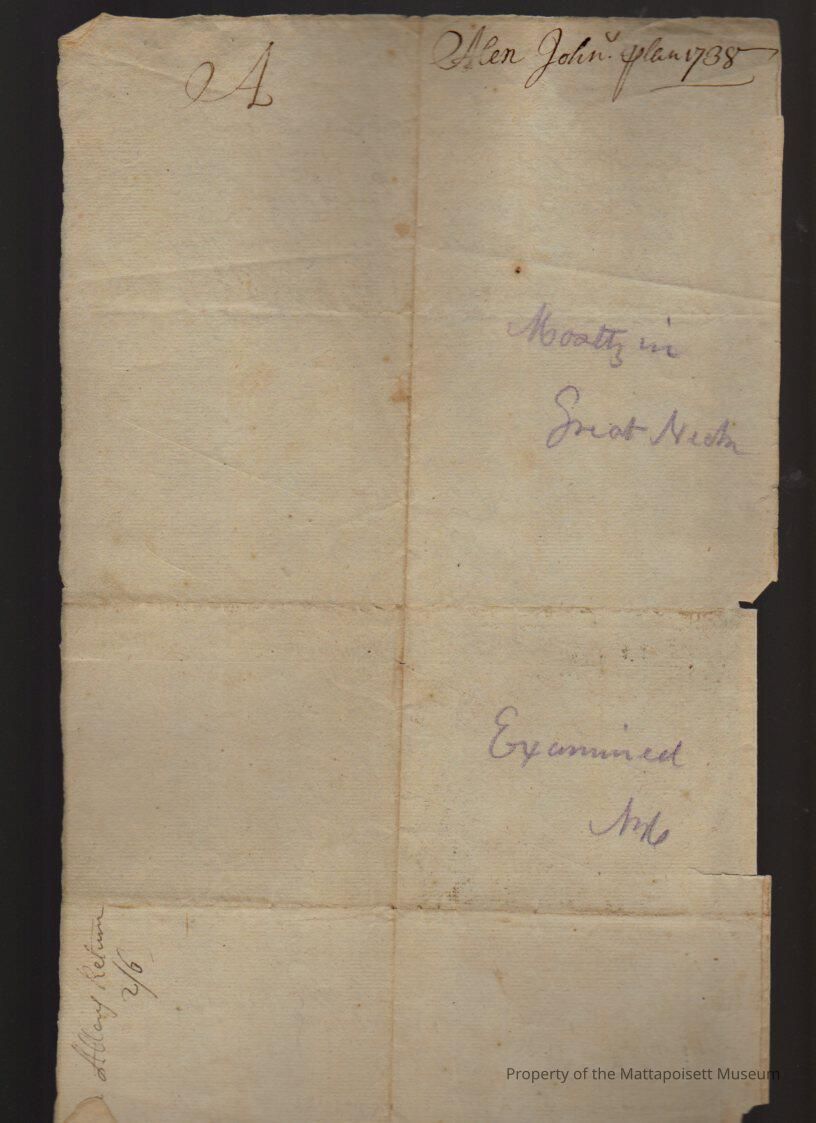 A
Alen John.s plan 1738
Mostly in
Great Neck
Examined
Return
2/6
Property of the Mattapoisett Museum